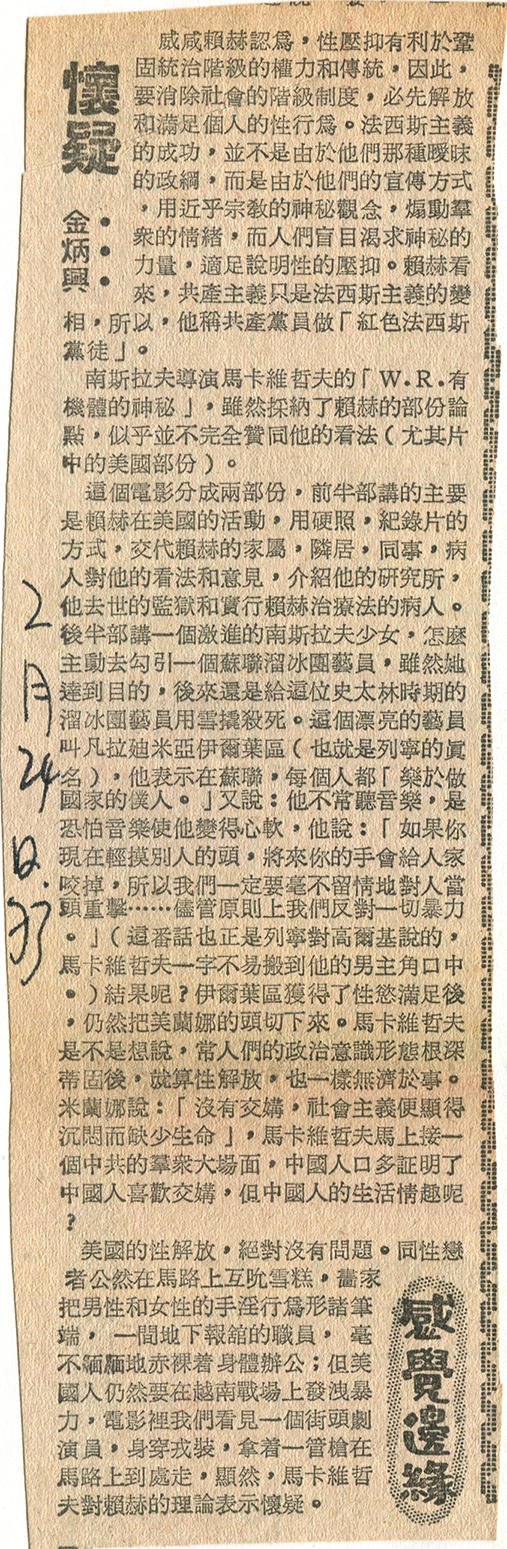 懷疑
金炳興
威咸賴赫認爲，性壓抑有利於鞏
固統治階級的權力和傳統，因此，
要消除社會的階級制度，必先解放
和滿足個人的性行爲。法西斯主義
的成功，並不是由於他們那種曖昧
的政綱，而是由於他們的宣傳方式
，用近乎宗教的神秘觀念，煽動羣
衆的情緒，而人們盲目渴求神秘的
力量，適足說明性的壓抑。賴赫看
來，共產主義只是法西斯主義的變
相，所以，他稱共產黨員做「紅色法西斯
黨徒」。
南斯拉夫導演馬卡維哲夫的「W.R.有
機體的神秘」，雖然採納了賴赫的部份論
點，似乎並不完全贊同他的看法（尤其片
中的美國部份）。
這個電影分成兩部份，前半部講的主要
是賴赫在美國的活動，用硬照，紀錄片的
方式，交代賴赫的家屬，隣居，同事，病
人對他的看法和意見，介紹他的研究所，
他去世的監獄和實行賴赫治療法的病人。
後半部講一個激進的南斯拉夫少女，怎麽
主動去勾引一個蘇聯溜冰團藝員，雖然她
達到目的，後來還是給這位史太林時期的
溜冰團藝員用雪撬殺死。這個漂亮的藝員
叫凡拉廸米亞伊爾葉區（也就是列寧的眞
名），他表示在蘇聯，每個人都「樂於做
國家的僕人。」又說：他不常聽音樂，是
恐怕音樂使他變得心軟，他說：「如果你
現在輕摸別人的頭，將來你的手會給人家
咬掉，所以我們一定要毫不留情地對人當
頭重擊……儘管原則上我們反對一切暴力
。」（這番話也正是列寧對高爾基說的，
馬卡維哲夫一字不易搬到他的男主角口中
。）結果呢？伊爾葉區獲得了性慾滿足後
，仍然把美蘭娜的頭切下來。馬卡維哲夫
是不是想說，當人們的政治意識形態根深
蒂固後，就算性解放，也一樣無濟於事。
米蘭娜說：「沒有交媾，社會主義便顯得
沉悶而缺少生命」，馬卡維哲夫馬上接一
個中共的羣衆大場面，中國人口多証明了
中國人喜歡交媾，但中國人的生活情趣呢
？
美國的性解放，絕對沒有問題。同性戀
者公然在馬路上互吮雪糕，畵家
把男性和女性的手淫行爲形諸筆
端，一間地下報舘的職員，毫
不緬腼地赤裸着身體辦公；但美
國人仍然要在越南戰場上發洩暴
力，電影裡我們看見一個街頭劇
演員，身穿戎裝，拿着一管槍在
馬路上到處走，顯然，馬卡維哲
夫對賴赫的理論表示懷疑。
感覺邊緣
2月24日.73